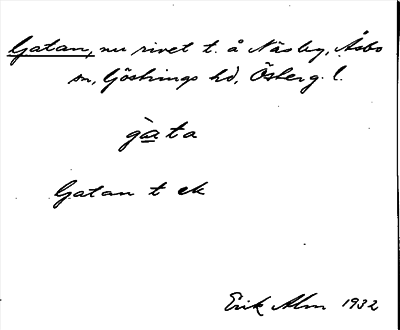 Gatan, nu rivet t. å Näsby, Åsbo
sn, Göstrings hd, Österg. l.
gàta
Gatan t ek
Erik Alm 1932